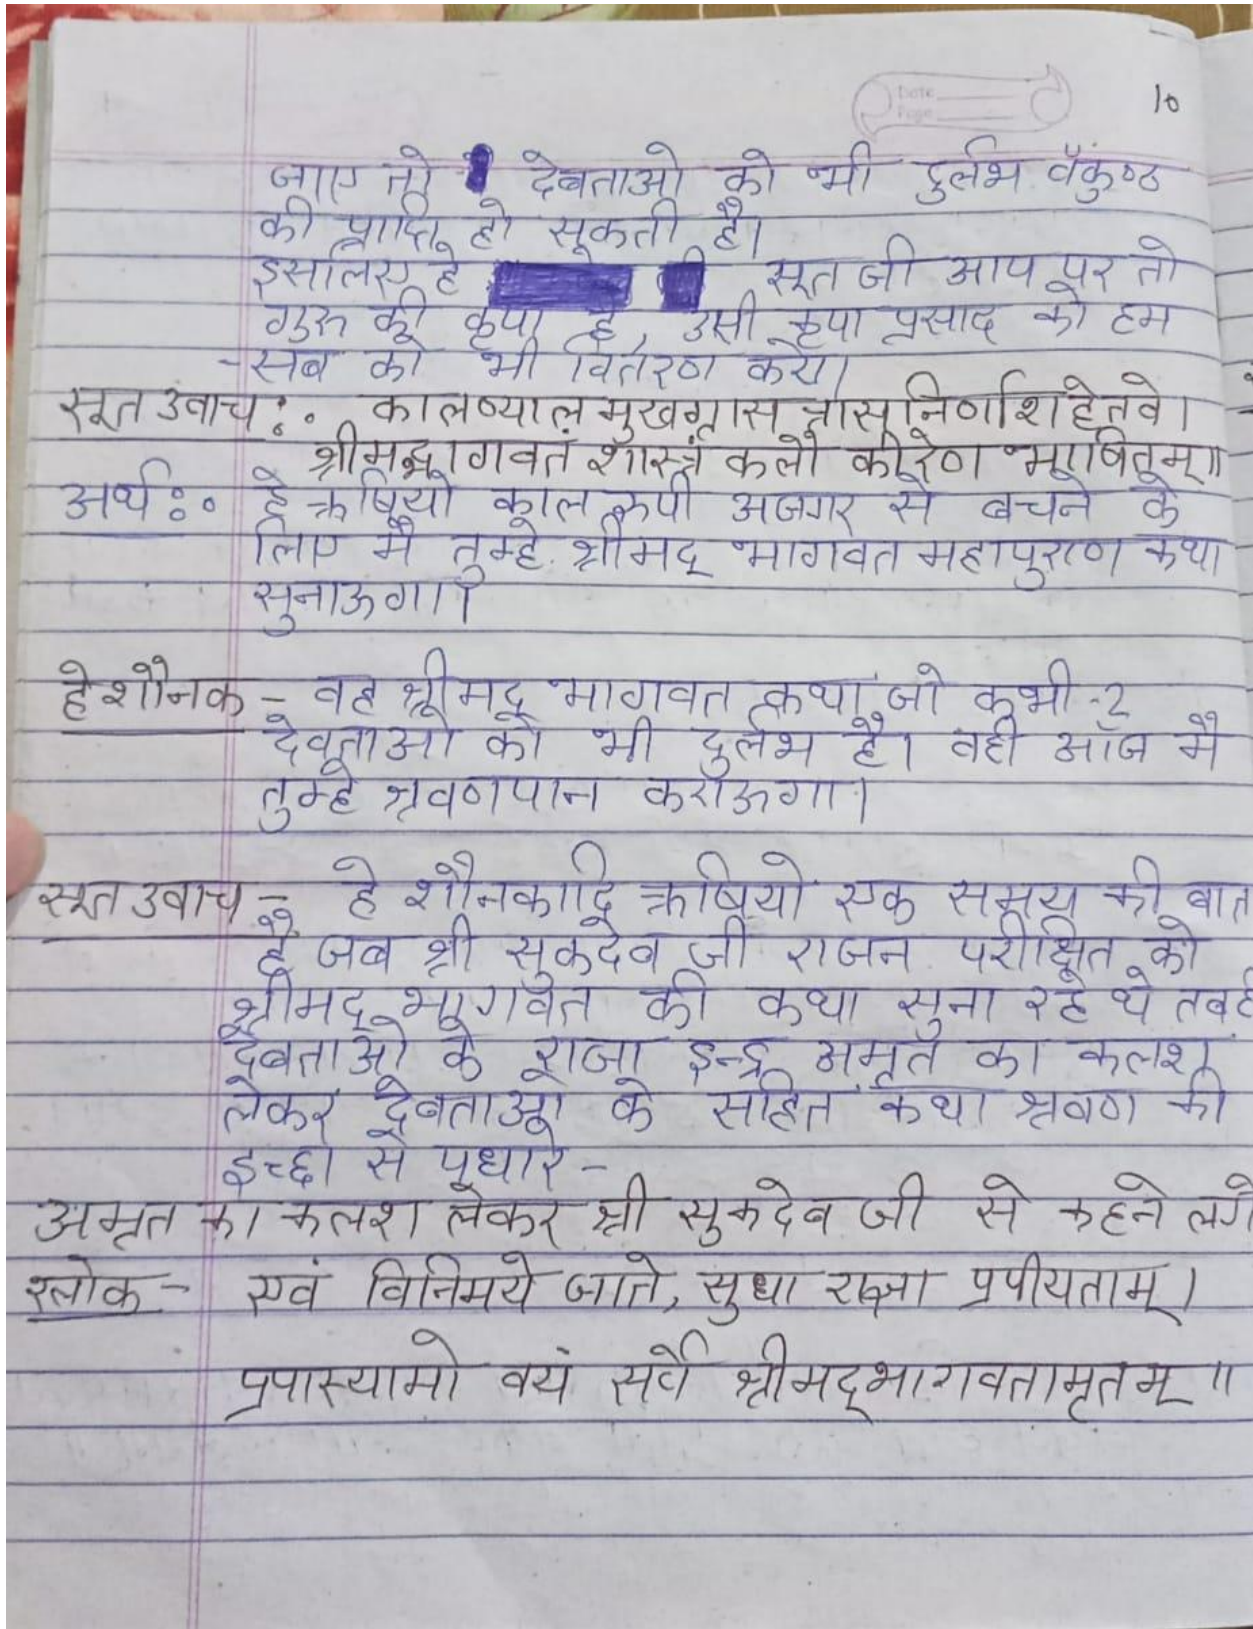 Date
Page
10
जाए तो देबताओ को भी दुर्लभ वैंकुण्ठ
की प्राप्ति हो सकती है।
इसलिए हे सूत जी आप पर तो
गुरू की कृपा है, उसी कृपा प्रसाद को हम
सब को भी वितरण करो।
सूत उवाच :. कालव्याल मुखग्रास त्रास निर्णाश हेतवे।
श्रीमद्भागवतं शास्त्रं कलौ कीरेण भाषितम्॥
अर्थ :. हे ऋषियो काल रूपी अजगर से बचने के
लिए मै तुम्हे श्रीमद् भागवत महापुराण कथा
सुनाऊगा।
हे शौनक - वह श्रीमद् भागवत कथा जो कभी-2
देवताओ को भी दुर्लभ है। वही आज मै
तुम्हे श्रवणपान कराऊगा।
सूत उवाच - हे शौनकादि ऋषियो एक समय की बात
है जब श्री सुकदेव जी राजन परीक्षित को
श्रीमद् भागवत की कथा सुना रहे थे
देबताओ के राजा इन्द्र अमृत का कलश
लेकर देबताओ के सहित कथा श्रवण की
इच्छा से पधारे -
अमृत का कलश लेकर श्री सुकदेब जी से कहने लगे
श्लोक - एवं विनिमये जाते, सुधा राज्ञा प्रपीयताम्।
प्रपास्यामो वयं सर्वे श्रीमद्भागवतामृतम् ॥